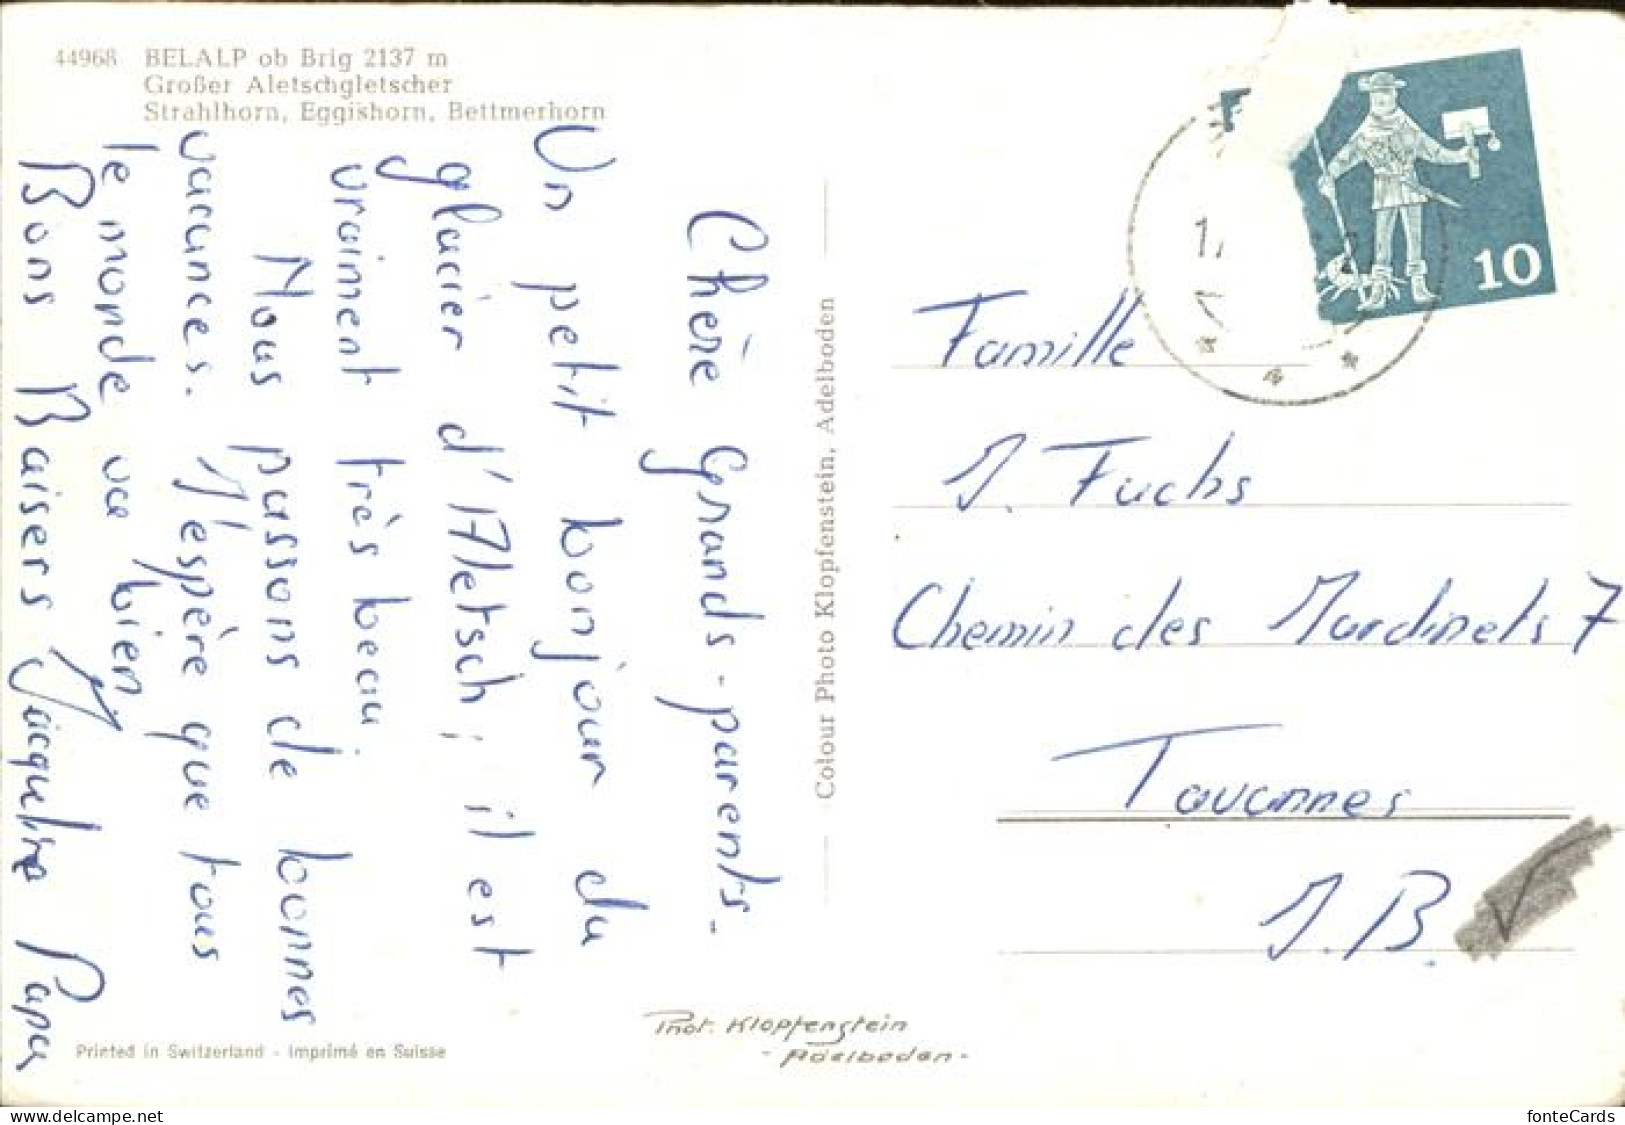 44968 BELALP ob Brig 2137 m
Großer Aletschgletscher
Strahlhorn, Eggishorn, Bettmerhorn
Chère Grands-parents.
Un petit bonjour du
glacier d'Aletsch; il est
vraiment très beau.
Nous passons de bonnes
vacances. J'espère que tous
le monde va bien
Bons Baisers Jacqueline Papa
Colour Photo Klopfenstein, Adelboden
10
Famille
J. Fuchs
Chemin des Mardinets 7
Tavannes
J.B.
Printed in Switzerland - Imprimé en Suisse
Phot. Klopfenstein
- Adelboden -
delcampe.net
fonteCards